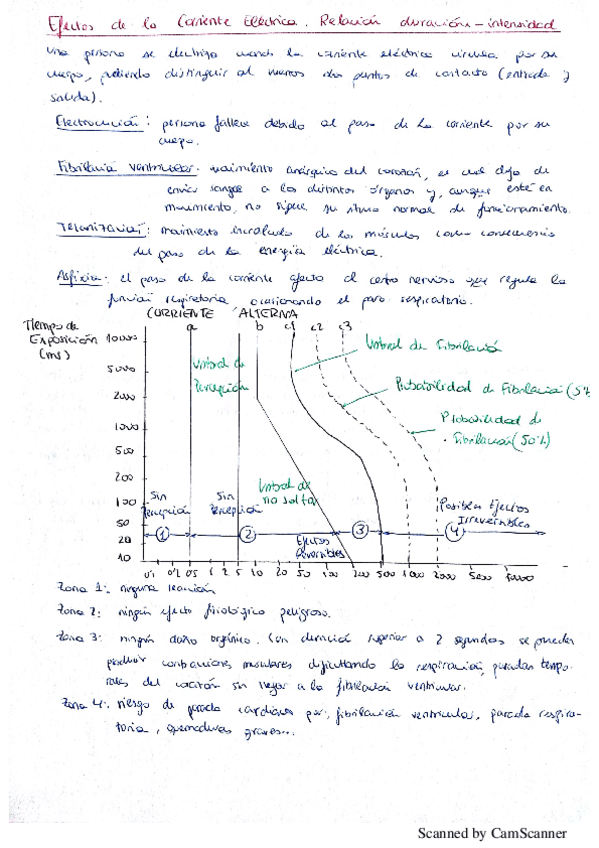 Efectos de la Corriente Eléctrica. Relación duración-intensidad
Una persona se electriza cuando la corriente eléctrica circula por su
cuerpo, pudiendo distinguir al menos dos puntos de contacto (entrada y
salida).
Electrocución: persona fallece debido al paso de la corriente por su
cuerpo.
Fibrilación ventricular: movimiento anárquico del corazón, el cual deja de
enviar sangre a los distintos órganos y, aunque esté en
movimiento, no sigue su ritmo normal de funcionamiento.
Tetanización: movimiento incontrolado de los músculos como consecuencia
del paso de la energía eléctrica.
Asfixia: el paso de la corriente afecta al centro nervioso que regula la
función respiratoria, ocasionando el paro respiratorio.
CORRIENTE ALTERNA
Tiempo de
Exposición
(ms)
a b c1 c2 c3
10000
5000
2000
1000
500
200
100
50
20
10
Umbral de
Percepción
Umbral de Fibrilación
Probabilidad de Fibrilación (5%
Probabilidad de
Fibrilación (50%)
Umbral de
no soltar
Sin
Percepción
Sin
Percepción
Efectos
Reversibles
Posibles Efectos
Irreversibles
1 2 3 4
0'1 0'2 0'5 1 2 5 10 20 50 100 200 500 1000 2000 5000 10000
Zona 1: ninguna reacción
Zona 2: ningún efecto fisiológico peligroso.
Zona 3: ningún daño orgánico. Con duración superior a 2 segundos se pueden
producir contracciones musculares dificultando la respiración, paradas tempo-
rales del corazón sin llegar a la fibrilación ventricular.
Zona 4: riesgo de parada cardíaca por: fibrilación ventricular, parada respira-
toria, quemaduras graves...
Scanned by CamScanner